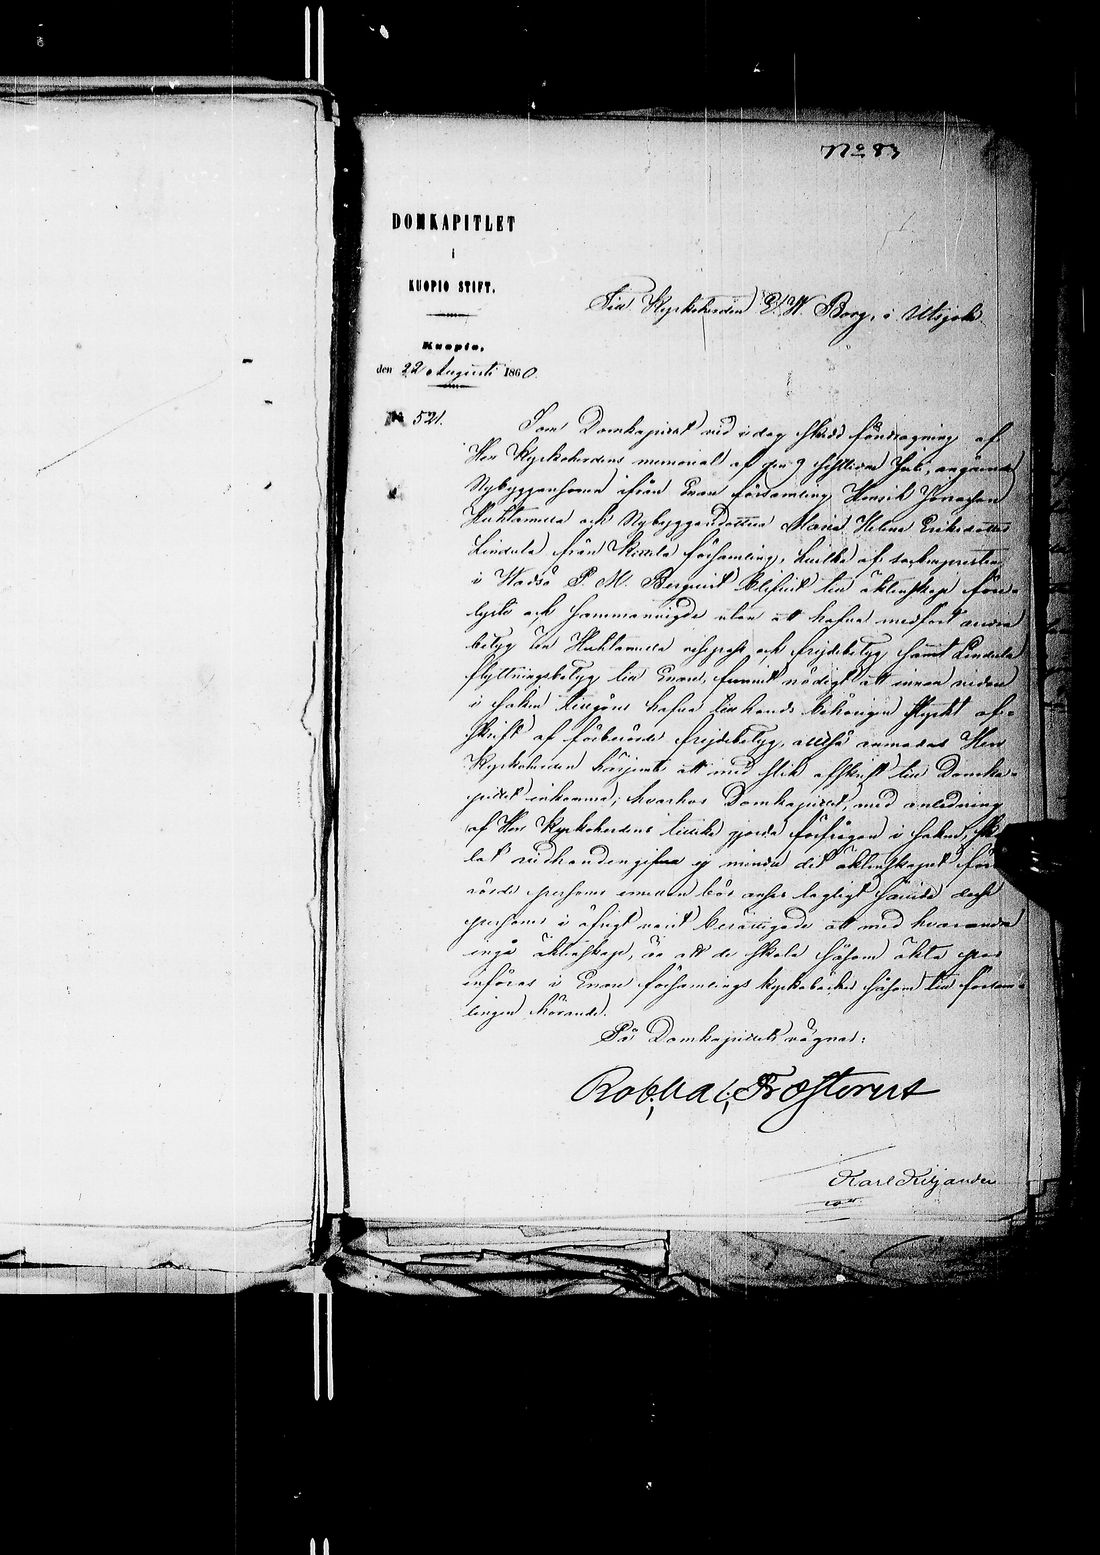 No 83
DOMKAPITLET
i
KUOPIO STIFT.
Kuopio,
den 22 Augusti 1860.
Till Kyrkoherden E. W. Borg, i Utsjoki
No 521.
Som Domkapitlet vid i dag skedd föredragning af
Herr Kyrkoherdens memorial af den 9 sistlidne Juli, angående
Nybyggaresonen ifrån Enare församling Henrik
Huhtamella och Nybyggaredottren Maria Helena Eriksdotter
Lindula från Kittilä församling, hvilka af socknepresten
i Wadsö P. M. Berquist blifvit till äktenskap före-
lyste och sammanvigde utan att hafva medfört andra
betyg än Huhtamella respass och frejdebetyg samt Lindula
flyttningsbetyg till Enare, funnit nödigt att innan vidare
i saken tillgöres hafva tillhanda behörigen styrkt af-
skrift af förberörde frejdebetyg, alltså anmodas Herr
Kyrkoherden härjemte att med slik afskrift till Domka-
pitlet inkomma; hvarhos Domkapitlet, med anledning
af Herr Kyrkoherdens tillika gjorda förfrågan i saken,
lat vidhandengifva ej mindre det äktenskapet
rörde personer emellan bör anses lagligt, såvida desse
personer i öfrigt varit berättigade att med hvarandra
ingå äktenskap, än att de skola såsom äkta par
införas i Enare församlings kyrkoböcker såsom till församl-
lingen hörande.
På Domkapitlets vägnar:
Rob. Val. Frosterus
Karl Kiljander